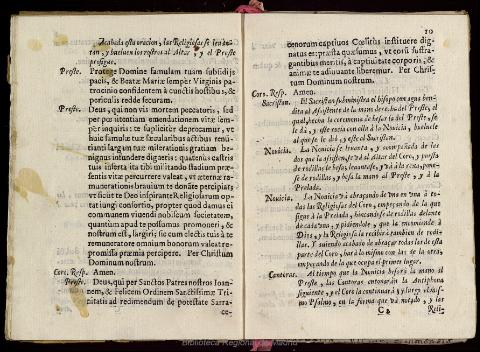 Acabada esta oracion, las Religiosas se levan-
tan, y buelven los rostros al Altar, y el Preste
prosigue.
Preste. Protege Domine famulam tuam subsidijs
pacis, & Beatæ Mariæ semper Virginis pa-
trocinio confidentem à cunctis hostibus, &
periculis redde securam.
Preste. Deus, qui non vis mortem peccatoris, sed
per pœnitentiam emendationem vitæ sem-
per inquiris: te supliciter deprecamur, vt
huic famulæ tuæ sæcularibus actibus renū-
tianti largam tuæ miserationis gratiam be-
nignus infundere digneris: quatenus castris
tuis inserta ita tibi militando stadium præ-
sentis vitæ percurrere valeat, vt æternæ re-
munerationis bravium te donāte percipiat;
vtsicut te Deo inspirante Religiosarum op-
tat iungi consortio, propter quod damus ei
communem vivendi nobiscum societatem,
quantum apud te possumus promoneri; &
nostrum est, largiri; sic cum electis tuis à te
remuneratore omnium bonorum valeat re-
promissis præmia percipere. Per Christum
Dominum nostrum.
Cor. Resp. Amen.
Preste. Deus, qui per Sanctos Patres nostros Ioan-
nem, & Felicem Ordinem Sanctissimæ Tri-
nitatis ad redimendum de potestate Sarra-
ce-
10
cenorum captivos Cœlitus instituere dig-
natus es: præsta quæsumus, vt eorū suffra-
gantibus meritis, à captivitate corporis, &
animæ te adiuvante liberemur. Per Chris-
tum Dominum nostrum.
Cor. Resp. Amen.
Sacristan. El Sacristan subministra el hisopo con agua ben-
dita al Asistente de la mano derecha del Preste, el
qual, hecha la ceremonia de besar la del Preste, se
le dà, y este rocia con ella à la Novicia, buelvele
al que se le diò, y este al Sacristan.
Novicia. La Novicia se levanta, y acompañada de las
dos que la asisten, se và al Altar del Coro, y puesta
de rodillas le besa, levantase, y và à la rexa, pone-
se de rodillas, y besa la mano al Preste, y à la
Prelada.
Novicia. La Novicia và abraçando de vna en vna à to-
das las Religiosas del Coro, empeçando de la que
sigue à la Prelada, hincandose de rodillas delante
de cada vna, y pidiendole, que la encomiende à
Dios, y la Religiosa la recibe tambien de rodi-
llas. Y aviendo acabado de abraçar todas las de esta
parte del Coro, harà lo mismo con las de la otra,
empeçando de la que ocupa el primer lugar.
Cantoras. Al tiempo que la Novicia besarà la mano al
Preste, las Cantoras entonaràn la Antiphona
siguiente, y el Coro la continuarà, y luego el mis-
mo Psalmo, en la forma que và notado, y las
C 2 Reli-
Biblioteca Regional de Madrid